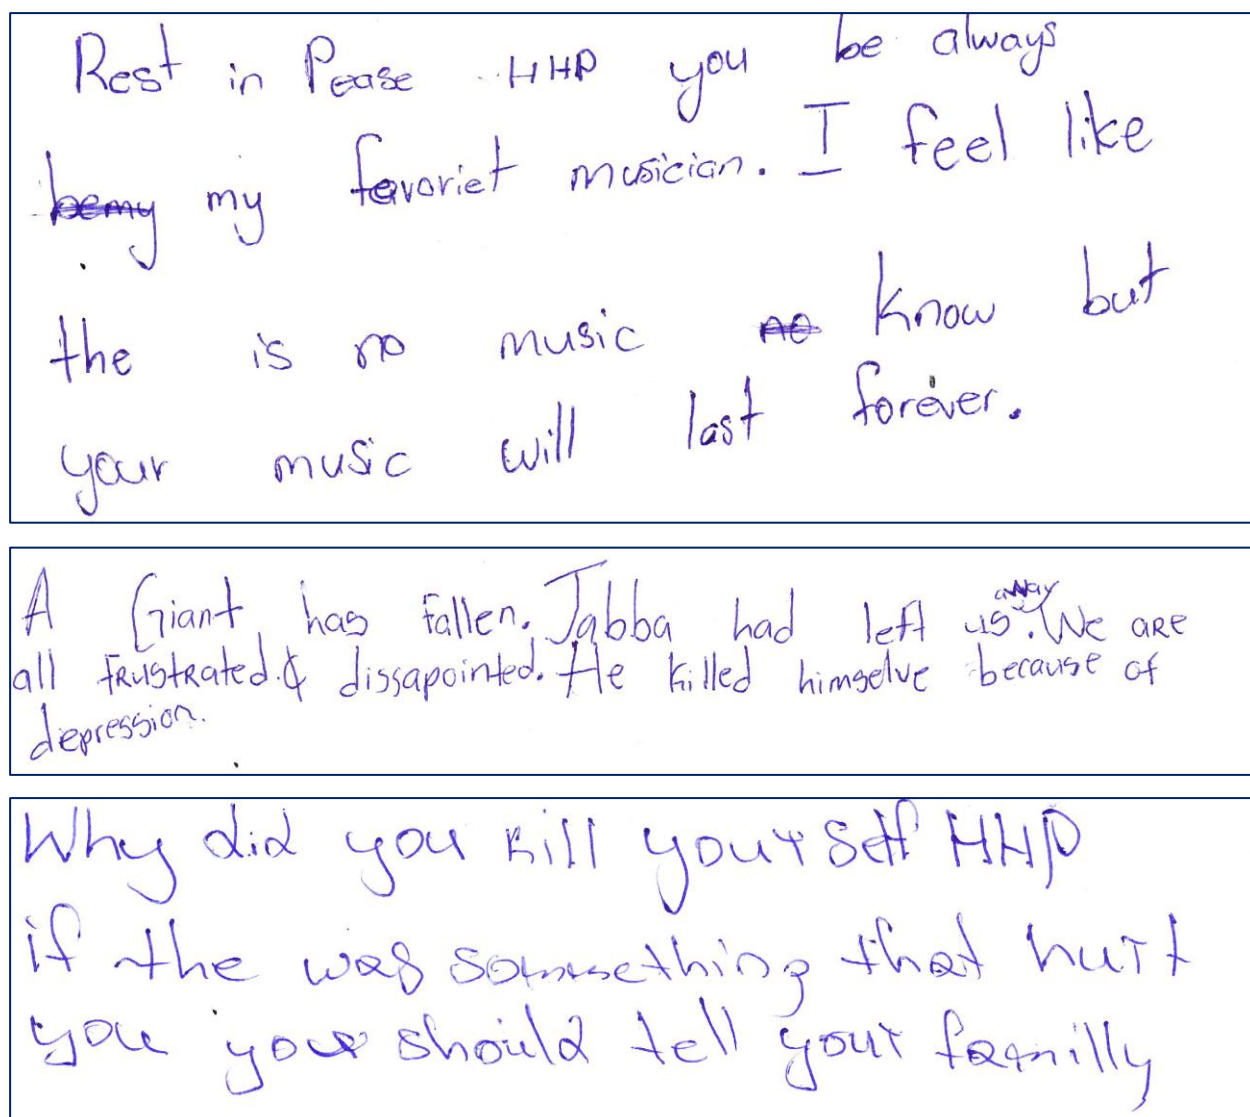 Rest in Pease HHP you be always
bemy my favoriet musician. I feel like
the is no music no know but
your music will last forever.
A Giant has fallen. Jabba had left us away. We are
all frustrated & dissapointed. He killed himselve because of
depression.
Why did you kill yourself HHP
if the was sommething that hurt
you you should tell your familly